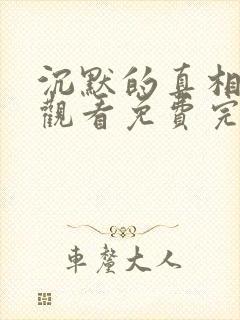 沉默的真相
觀看免費完
車釐大人